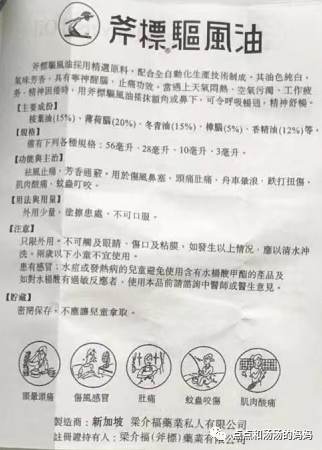 斧標驅風油
斧標驅風油採用精選原料，配合全自動化生產技術制成，其油色純白，
氣味芳香，具有寧神醒腦，止痛功效。當遇上天氣悶熱、空氣污濁、工作疲
勞、精神困倦時，用斧標驅風油搽抹額角或鼻下，可令呼吸暢通，精神舒暢。
【主要成份】
桉葉油(15%)、薄荷腦(20%)、冬青油(15%)、樟腦(5%)、香精油(12%)等。
【規格】
備有下列各種規格：56毫升、28毫升、10毫升、3毫升。
【功能與主治】
祛風止痛，芳香通竅。用於傷風鼻塞，頭痛肚痛，舟車暈浪，跌打扭傷，
肌肉酸痛，蚊蟲叮咬。
【用法與用量】
外用少量，塗擦患處，不可口服。
【注意】
只限外用。不可觸及眼睛、傷口及粘膜，如發生以上情況，應以清水沖
洗。兩歲以下小童不宜使用。
患有感冒，水痘或發熱病的兒童避免使用含有水楊酸甲酯的產品及
如對水楊酸有過敏反應者，使用本品前請諮詢中醫師或醫生意見。
【貯藏】
密閉保存。不應讓兒童拿取。
頭暈頭痛
傷風感冒
肚痛
蚊蟲咬傷
肌肉酸痛
製造商：新加坡 梁介福藥業私人有限公司
註冊證持有人：梁介福(斧標)藥業有限公司
點点和汤汤的妈妈